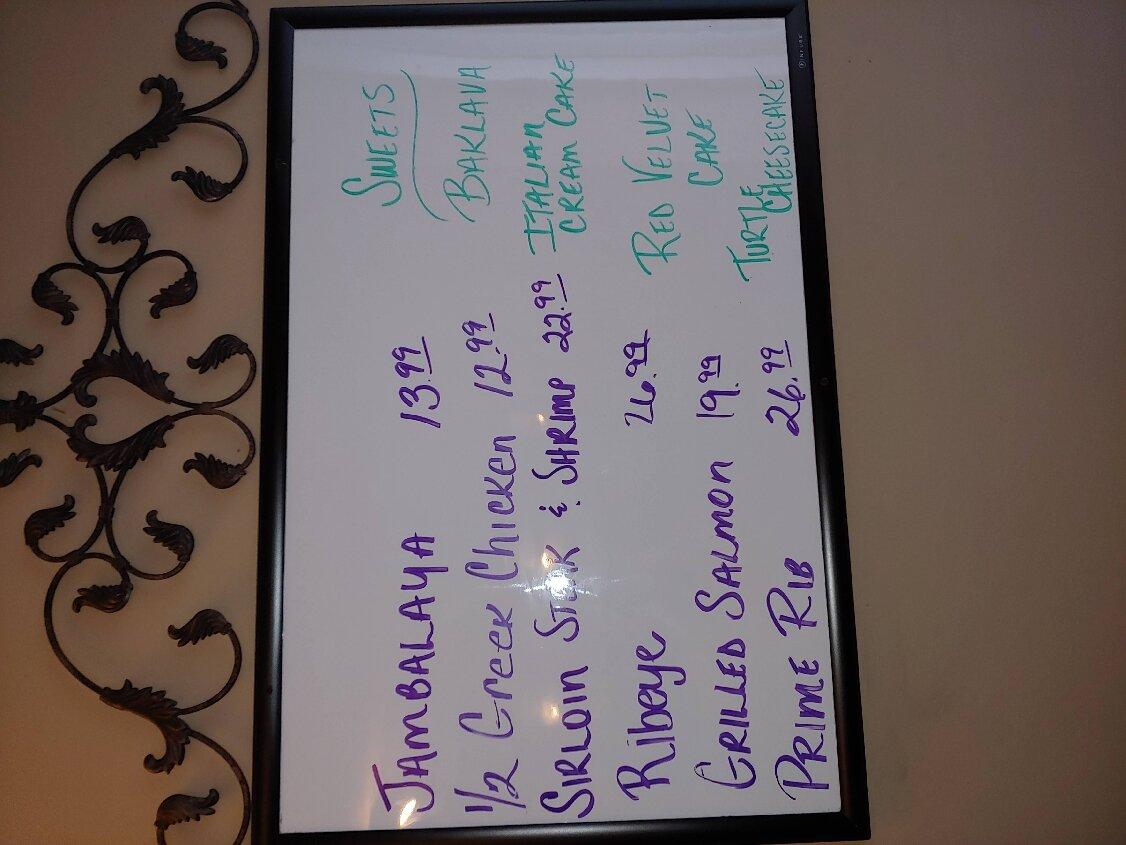 SWEETS
JAMBALAYA 13.99
BAKLAVA
1/2 Greek Chicken 12.99
ITALIAN
CREAM CAKE
SIRLOIN STEAK & SHRIMP 22.99
RED VELVET
CAKE
Ribeye 26.99
GRILLED SALMON 19.99
TURTLE
CHEESECAKE
PRIME RIB 26.99